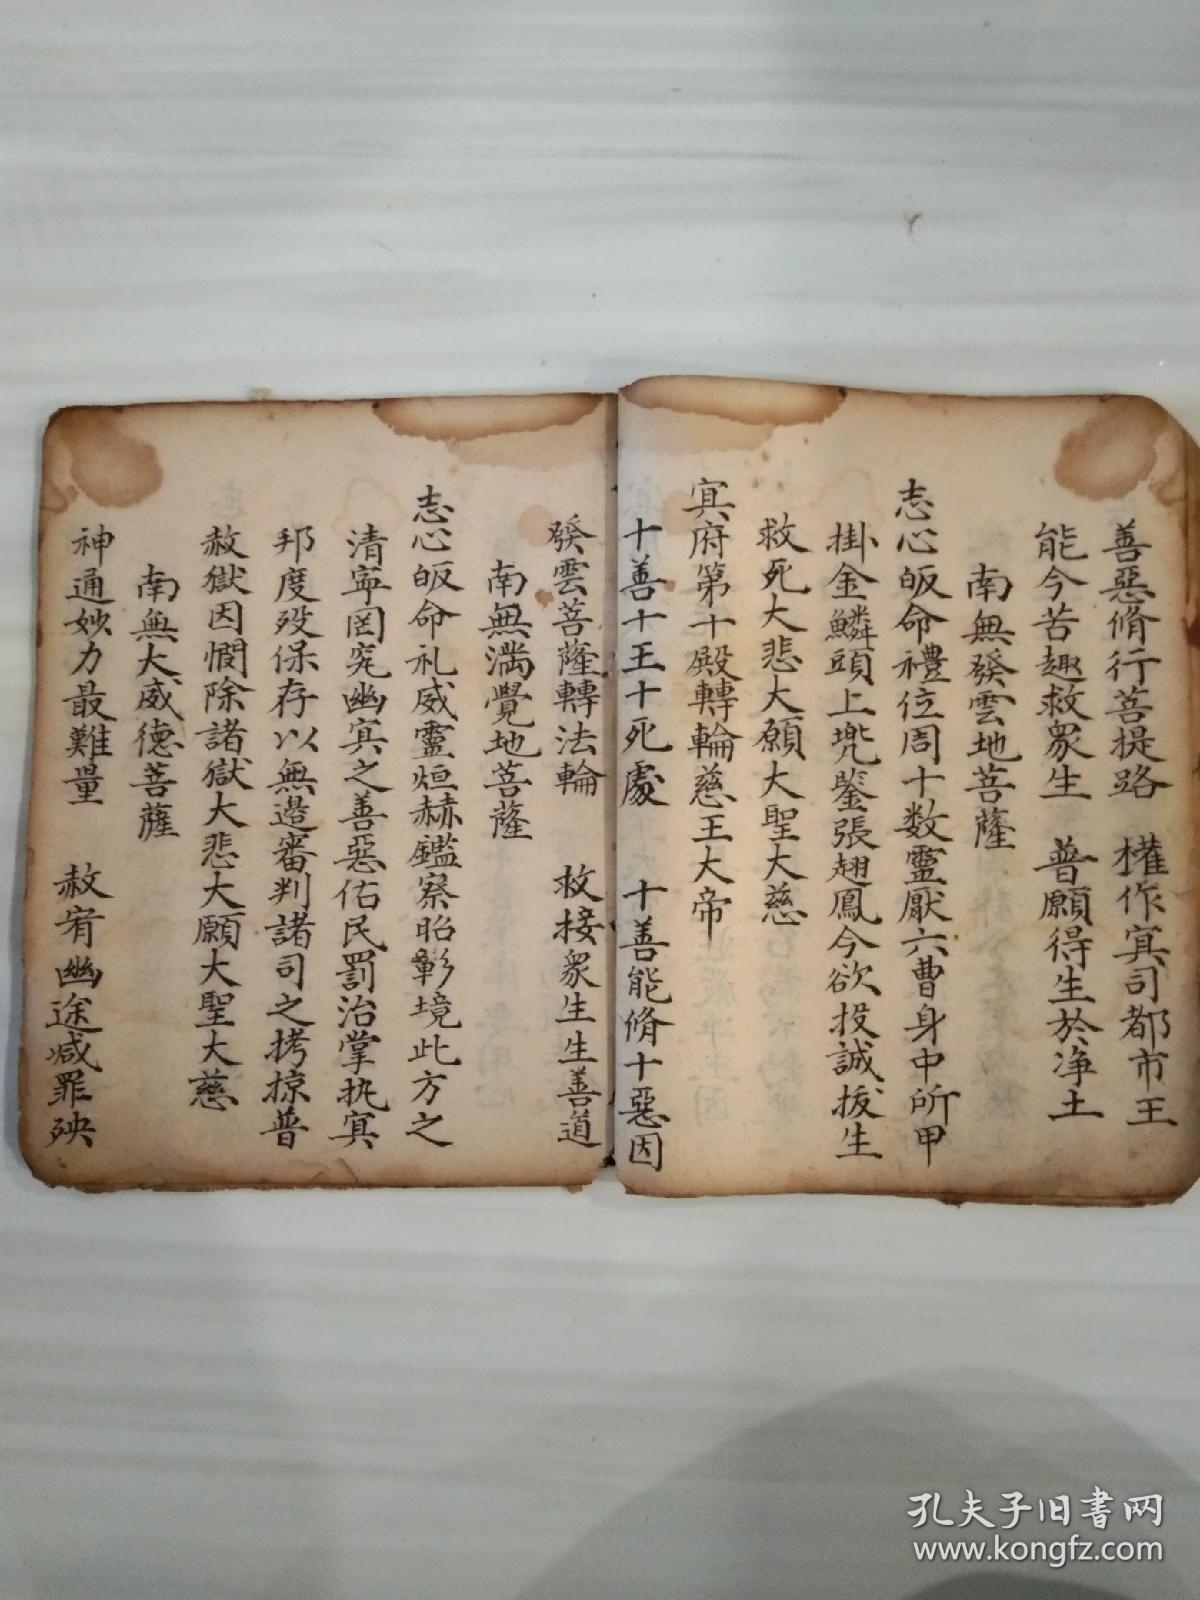 善惡脩行菩提路　權作冥司都市王
能令苦趣救眾生　普願得生於净土
南無發雲地菩薩
志心皈命禮位周十数靈厭六曹身中所甲
掛金鱗頭上兠鍪張翅鳳今欲投誠拔生
救死大悲大願大聖大慈
冥府第十殿轉輪慈王大帝
十善十王十死處　十善能脩十惡因
發雲菩薩轉法輪　救接眾生生善道
南無滿覺地菩薩
志心皈命礼威靈烜赫鑑察昭彰境此方之
清寧囹宛幽冥之善惡佑民罰治掌执冥
邦度殁保存以無邉審判諸司之拷掠普
赦獄因憫除諸獄大悲大願大聖大慈
南無大威德菩薩
神通妙力最難量　赦宥幽途减罪殃
孔夫子旧書网
www.kongfz.com